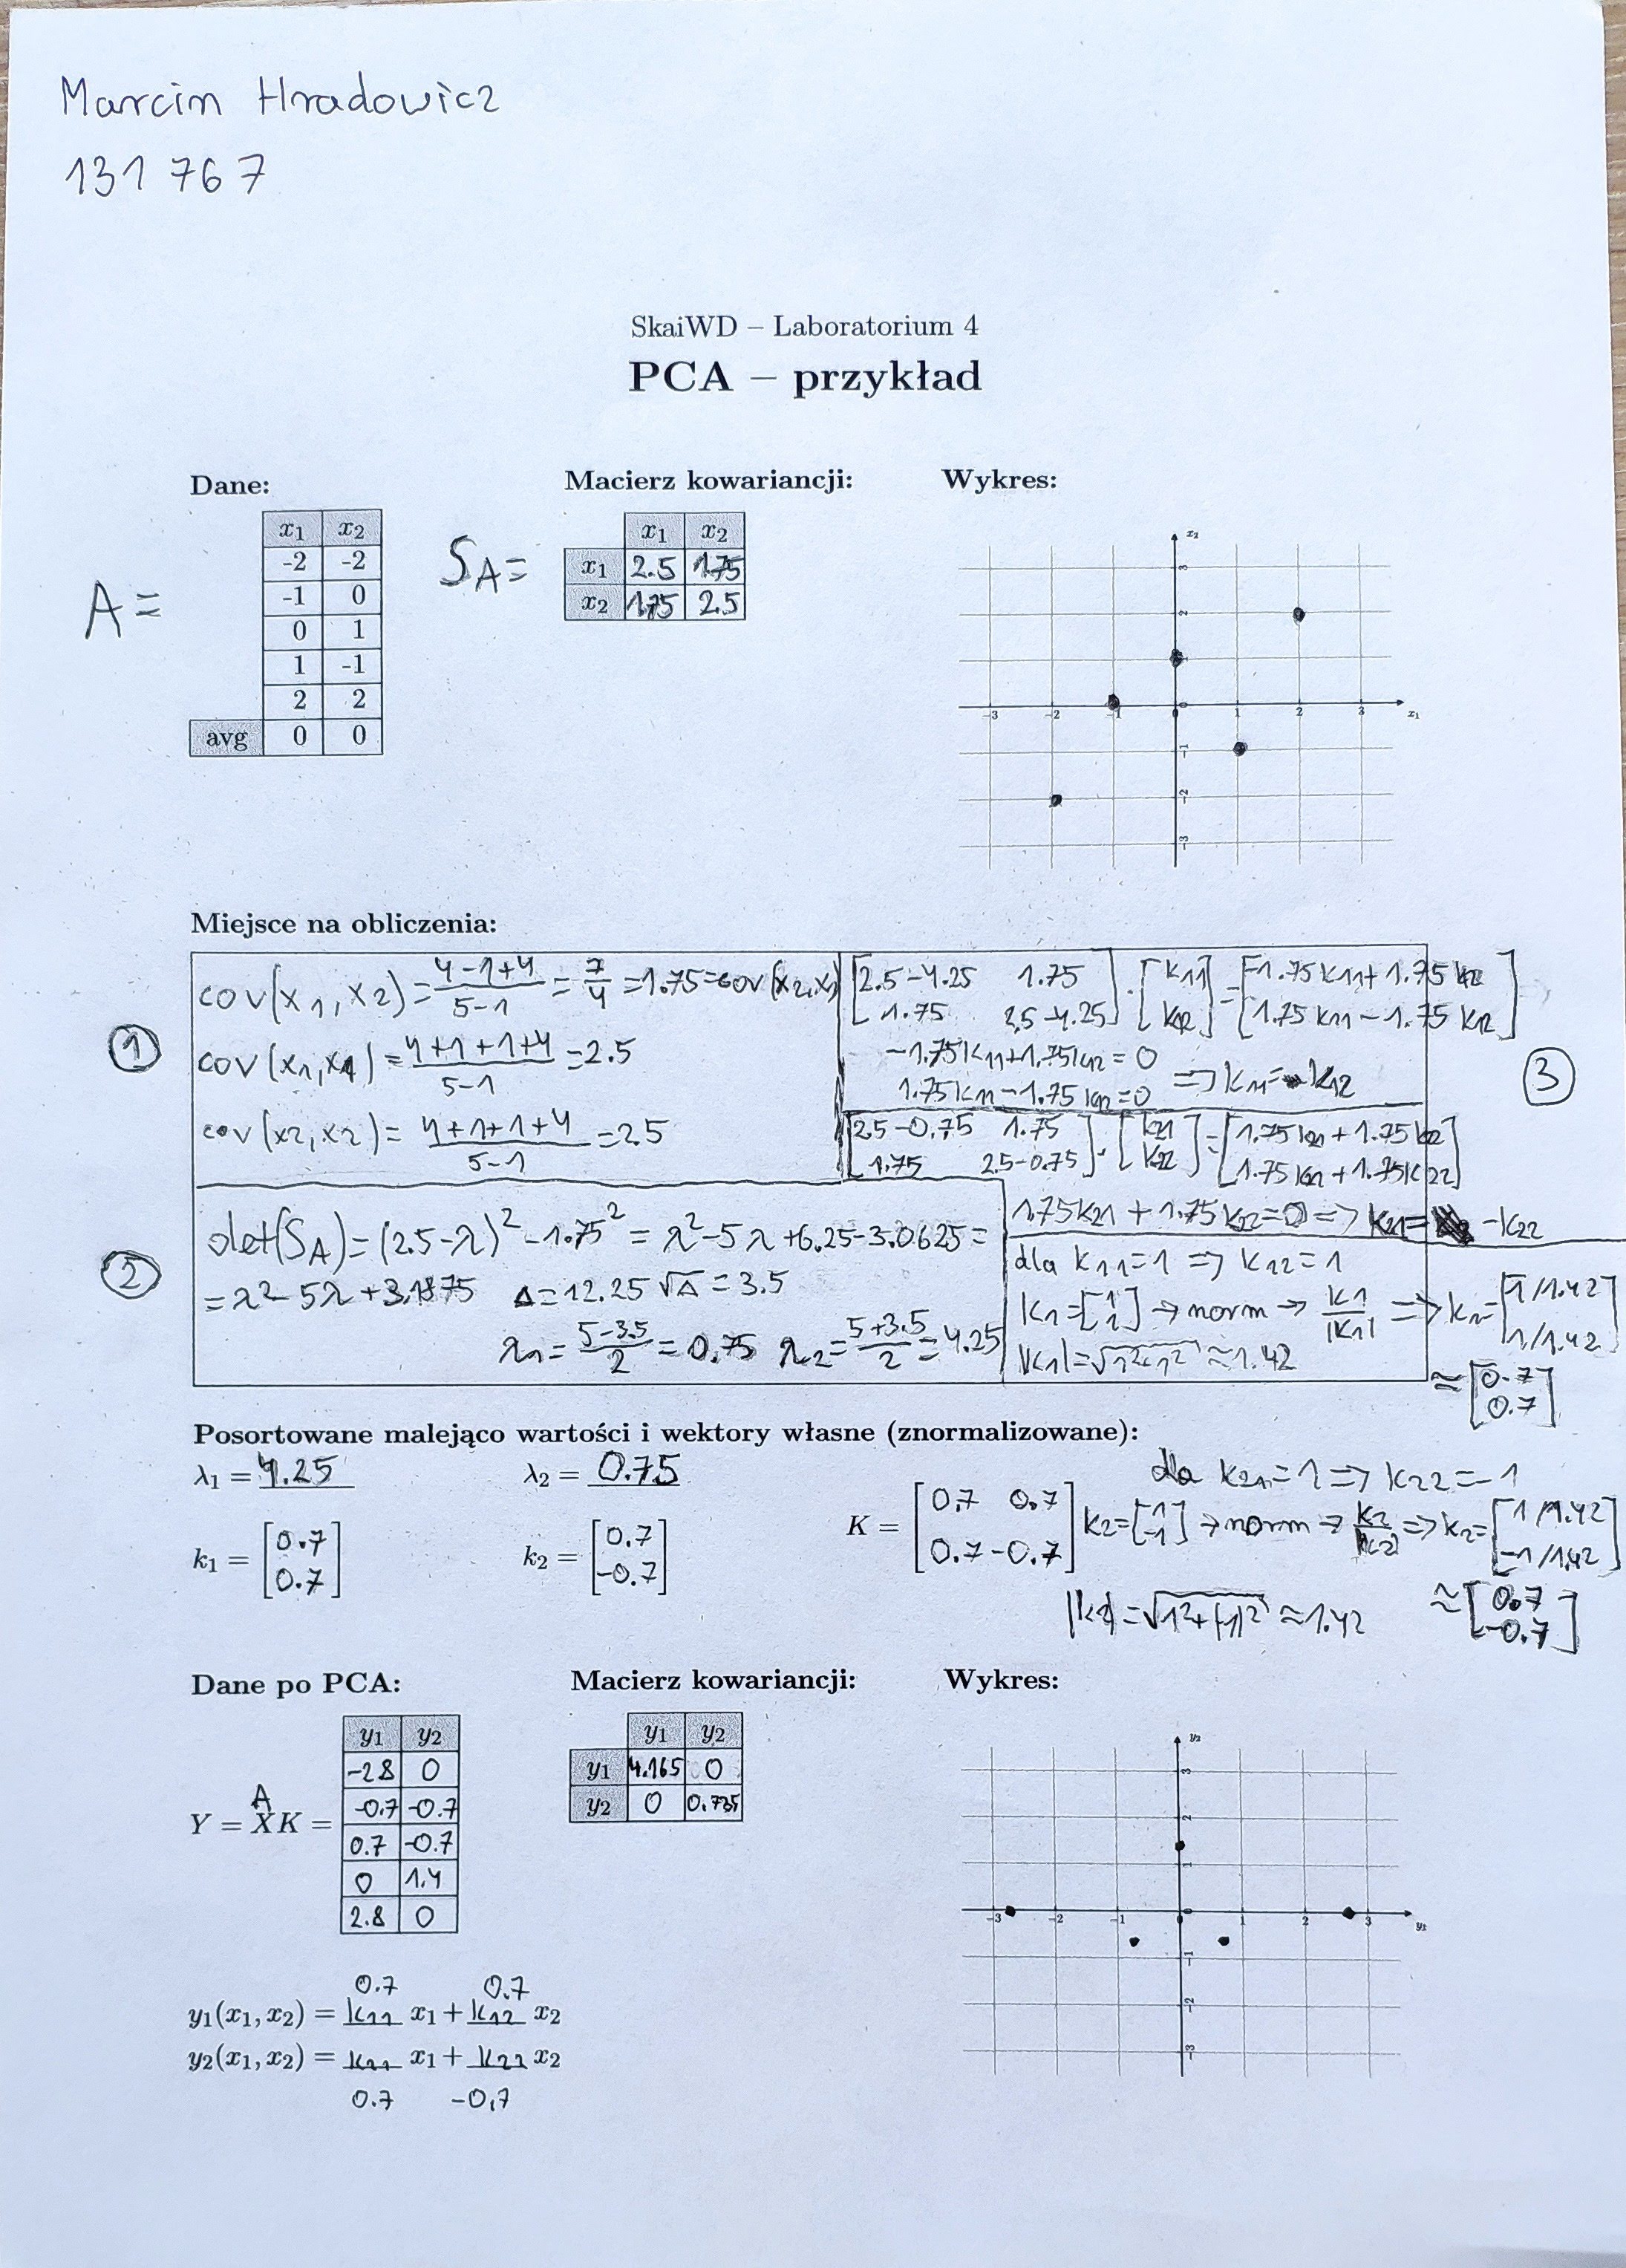 Marcin Hradowicz
131 767
SkaiWD – Laboratorium 4
PCA – przykład
Dane:
A =
x1 x2
-2 -2
-1 0
0 1
1 -1
2 2
avg 0 0
Macierz kowariancji:
SA =
x1 x2
x1 2.5 1.75
x2 1.75 2.5
Wykres:
x2
3
2
1
-3 -2 -1 0 0 1 2 3 x1
-1
-2
-3
Miejsce na obliczenia:
①
cov(x1, x2) = (4-1+4)/(5-1) = 7/4 = 1.75 = cov(x2, x1)
cov(x1, x1) = (4+1+1+4)/(5-1) = 2.5
cov(x2, x2) = (4+1+1+4)/(5-1) = 2.5
②
det(SA) = (2.5-λ)² - 1.75² = λ² - 5λ + 6.25 - 3.0625 =
= λ² - 5λ + 3.1875 Δ = 12.25 √Δ = 3.5
λ1 = (5-3.5)/2 = 0.75 λ2 = (5+3.5)/2 = 4.25
③
[2.5-4.25 1.75; 1.75 2.5-4.25] · [k11; k12] = [-1.75k11 + 1.75k12; 1.75k11 - 1.75k12]
-1.75k11 + 1.75k12 = 0
1.75k11 - 1.75k12 = 0 => k11 = k12
[2.5-0.75 1.75; 1.75 2.5-0.75] · [k21; k22] = [1.75k21 + 1.75k22; 1.75k21 + 1.75k22]
1.75k21 + 1.75k22 = 0 => k21 = -k22
dla k11 = 1 => k12 = 1
k1 = [1; 1] → norm → k1/|k1| => k1 = [1/1.42; 1/1.42]
|k1| = √(1²+1²) ≈ 1.42
≈ [0.7; 0.7]
Posortowane malejąco wartości i wektory własne (znormalizowane):
λ1 = 4.25 λ2 = 0.75
k1 = [0.7; 0.7] k2 = [0.7; -0.7] K = [0,7 0.7; 0.7 -0.7]
dla k21 = 1 => k22 = -1
k2 = [1; -1] → norm → k2/|k2| => k2 = [1/1.42; -1/1.42]
|k2| = √(1²+(-1)²) ≈ 1.42 ≈ [0.7; -0.7]
Dane po PCA:
A
Y = XK =
y1 y2
-2.8 0
-0.7 -0.7
0.7 -0.7
0 1.4
2.8 0
Macierz kowariancji:
y1 y2
y1 4.165 0
y2 0 0.735
Wykres:
y2
3
2
1
-3 -2 -1 0 0 1 2 3 y1
-1
-2
-3
0.7 0.7
y1(x1, x2) = k11 x1 + k12 x2
y2(x1, x2) = k21 x1 + k22 x2
0.7 -0,7